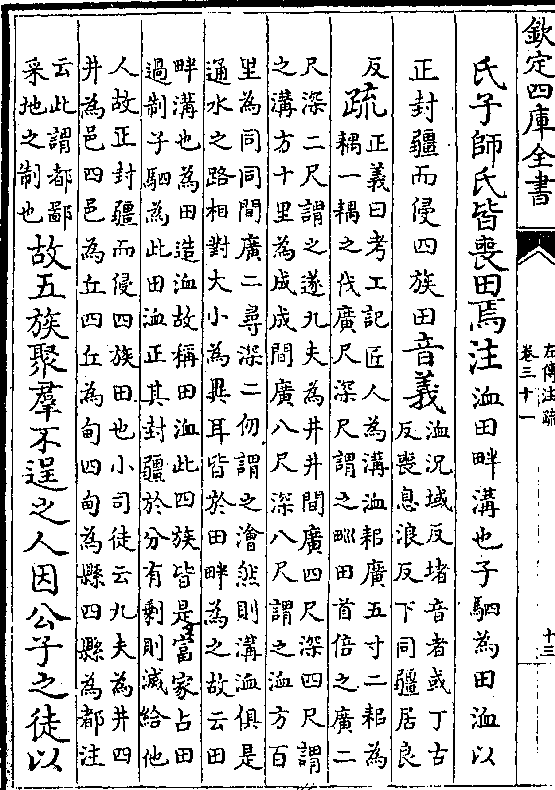 欽定四庫全書
左傳注疏
卷三十一
十三
氏子師氏皆喪田焉注洫田畔溝也子駟為田洫以
正封疆而侵四族田音義
洫況域反堵音者或丁古
反喪息浪反下同疆居良
反疏
正義曰考工記匠人為溝洫耜廣五寸二耜為
耦一耦之伐廣尺深尺謂之甽田首倍之廣二
尺深二尺謂之遂九夫為井井間廣四尺深四尺謂
之溝方十里為成成間廣八尺深八尺謂之洫方百
里為同同間廣二尋深二仞謂之澮然則溝洫俱是
通水之路相對大小為異耳皆於田畔為之故云田
畔溝也為田造洫故稱田洫此四族皆是富家占田
過制子駟為此田洫正其封疆於分有剩則減給他
人故正封疆而侵四族田也小司徒云九夫為井四
井為邑四邑為丘四丘為甸四甸為縣四縣為都注
云此謂都鄙
采地之制也
故五族聚羣不逞之人因公子之徒以